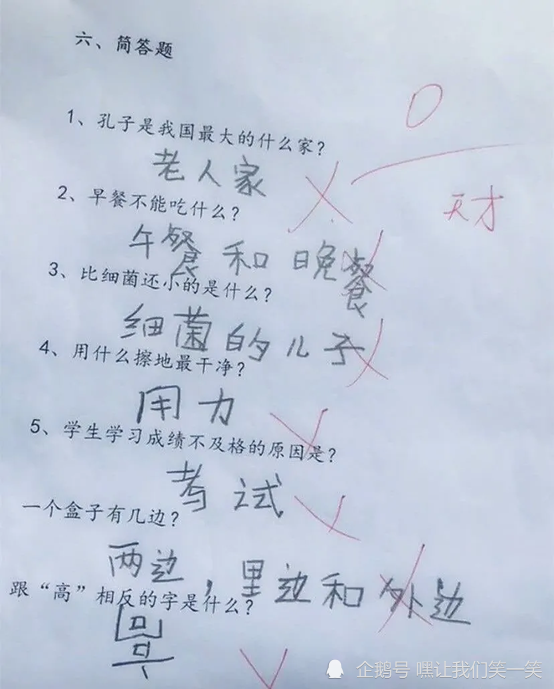 六、简答题
0
1、孔子是我国最大的什么家？
老人家
天才
2、早餐不能吃什么？
午餐和晚餐
3、比细菌还小的是什么？
细菌的儿子
4、用什么擦地最干净？
用力
5、学生学习成绩不及格的原因是？
考试
一个盒子有几边？
两边，里边和外边
跟“高”相反的字是什么？
企鹅号 嘿让我们笑一笑